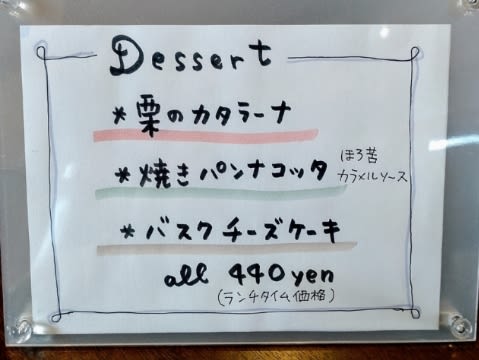 Dessert
*栗のカタラーナ
*焼きパンナコッタ ほろ苦
カラメルソース
*バスクチーズケーキ
all 440yen
(ランチタイム価格)